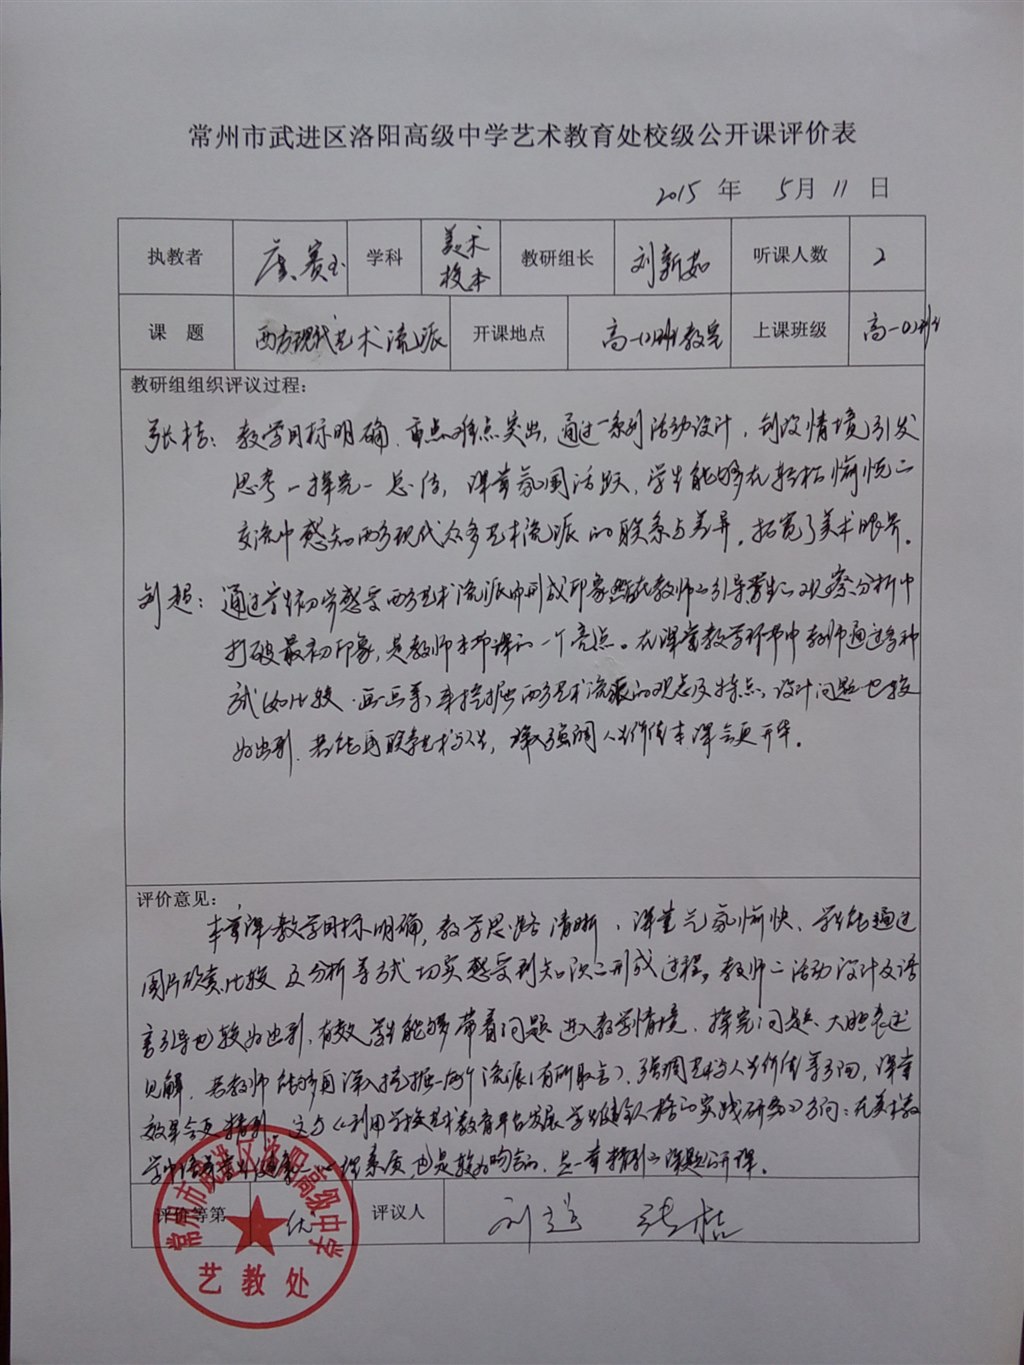 常州市武进区洛阳高级中学艺术教育处校级公开课评价表
2015 年 5月 11 日
执教者 赛玉 学科 美术校本 教研组长 刘新茹 听课人数 2
课 题 西方现代艺术流派 开课地点 高一(1)班教室 上课班级 高一(1)班
教研组组织评议过程：
张桔：教学目标明确、重点难点突出，通过一系列活动设计，创设情境引发
思考－探究－总结，课堂氛围活跃，学生能够在轻松愉悦二
交流中感知西方现代众多艺术流派的联系与差异，拓宽了美术眼界。
刘超：通过学生初步感受西方艺术流派中形成印象然后在教师的引导学生的观察分析中
打破最初印象，是教师本节课的一个亮点。在课堂教学环节中教师通过多种
式(如比较、画一画等)来挖掘西方艺术流派的观点及特点，设计问题也较
为出彩，若能再联系艺术与人生，强调人生价值本课会更升华。
评价意见：
本堂课教学目标明确，教学思路清晰，课堂气氛愉快、学生能通过
图片欣赏比较及分析等方式切实感受到知识二形成过程。教师二活动设计及语
言引导也较为出彩，有效学生能够带着问题进入教学情境，探究问题、大胆表述
见解，若教师能够再深入挖掘一两个流派(有所取舍)，强调艺术与人生价值等方面，课堂
效果会更精彩，这与《利用学校艺术教育平台发展学生健全人格的实践研究》方向：在美术教
学中培养学生健康心理素质也是较为吻合的，是一堂精彩的课题公开课。
评价等第 优 评议人 刘超 张桔
常州市武进区洛阳高级中学
艺教处